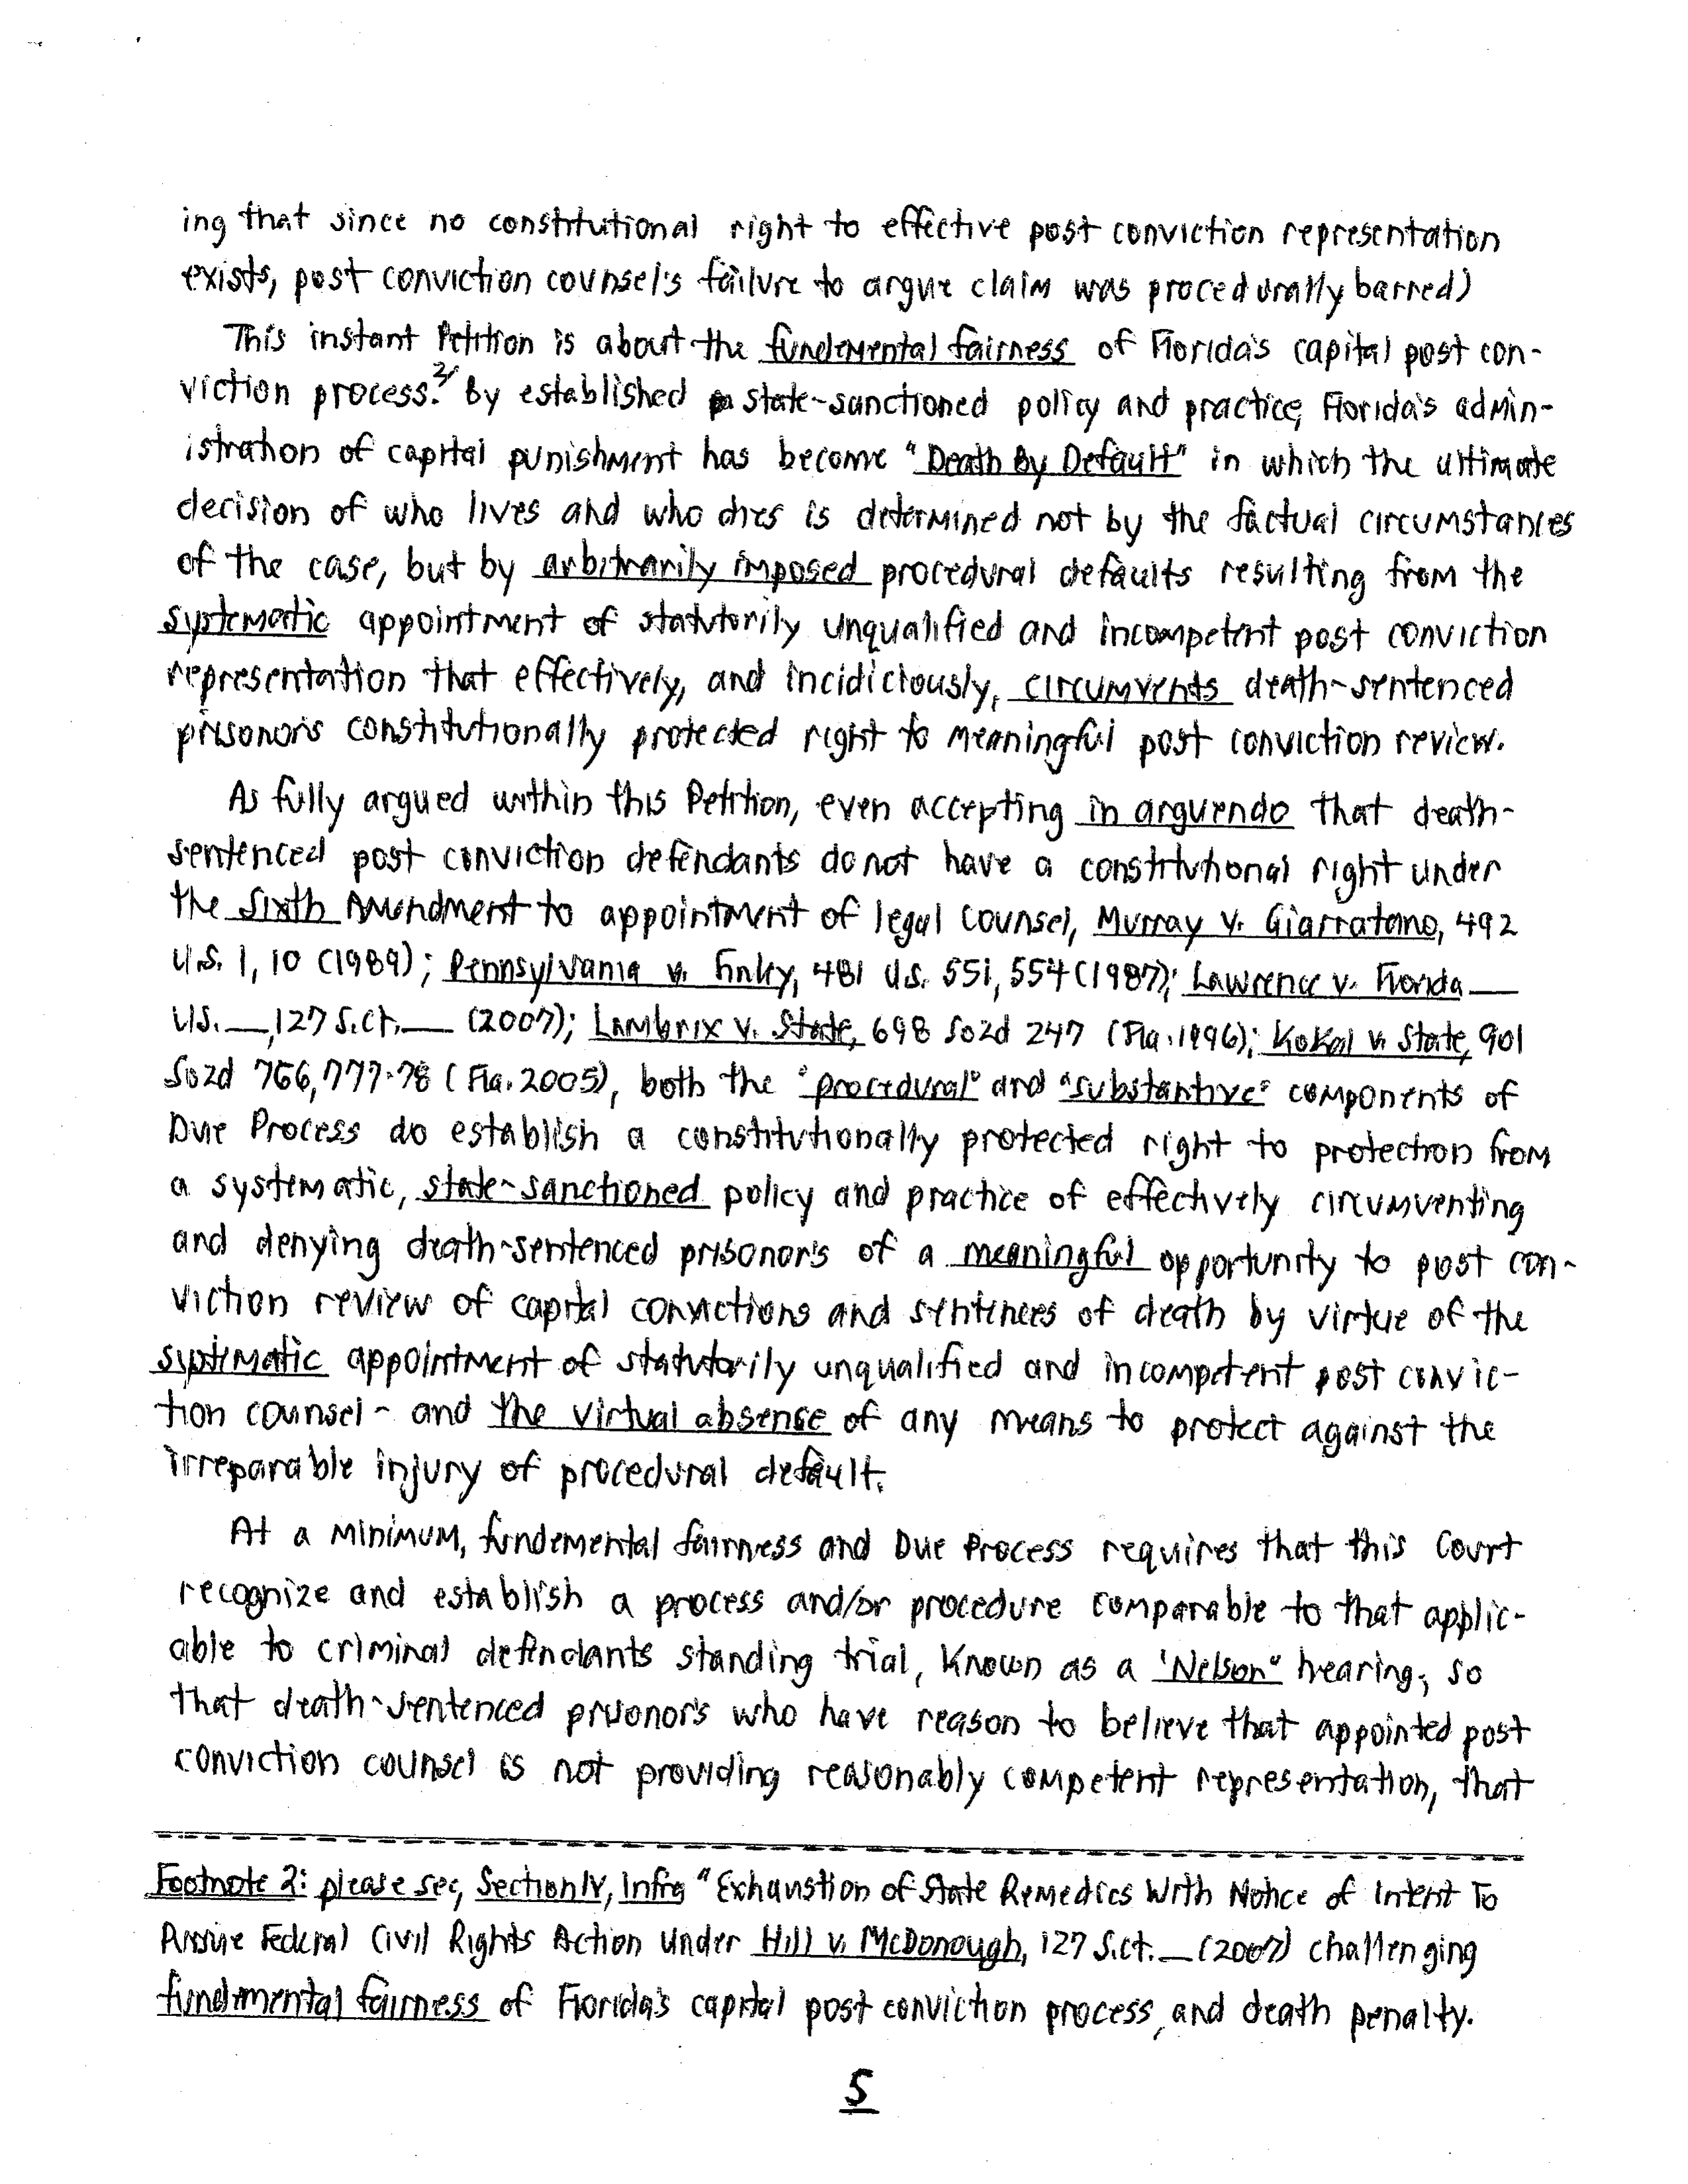 ing that since no constitutional right to effective post conviction representation
exists, post conviction counsel's failure to argue claim was procedurally barred)
This instant Petition is about the fundemental fairness of Florida's capital post con-
viction process.2/ By established state-sanctioned policy and practice, Florida's admin-
istration of capital punishment has become "Death By Default" in which the ultimate
decision of who lives and who dies is determined not by the factual circumstances
of the case, but by arbitrarily imposed procedural defaults resulting from the
systematic appointment of statutorily unqualified and incompetent post conviction
representation that effectively, and incidiciously, circumvents death-sentenced
prisonors constitutionally protected right to meaningful post conviction review.
As fully argued within this Petition, even accepting in arguendo that death-
sentenced post conviction defendants do not have a constitutional right under
the Sixth Amendment to appointment of legal counsel, Murray v. Giarratano, 492
U.S. 1, 10 (1989); Pennsylvania v. Finley, 481 U.S. 551, 554 (1987); Lawrence v. Florida __
U.S. __, 127 S.Ct. __ (2007); Lambrix v. State, 698 So2d 247 (Fla. 1996); Kokal v. State, 901
So2d 766, 777-78 (Fla. 2005), both the "procedural" and "substantive" components of
Due Process do establish a constitutionally protected right to protection from
a systematic, state-sanctioned policy and practice of effectively circumventing
and denying death-sentenced prisonor's of a meaningful opportunity to post con-
viction review of capital convictions and sentences of death by virtue of the
systematic appointment of statutorily unqualified and incompetent post convic-
tion counsel - and the virtual absense of any means to protect against the
irreparable injury of procedural default.
At a minimum, fundemental fairness and Due Process requires that this Court
recognize and establish a process and/or procedure comparable to that applic-
able to criminal defendants standing trial, known as a 'Nelson" hearing; so
that death-sentenced prisonors who have reason to believe that appointed post
conviction counsel is not providing reasonably competent representation, that
Footnote 2: please see, Section IV, Infra "Exhaustion of State Remedies With Notice of Intent To
Pursue Federal Civil Rights Action under Hill v. McDonough, 127 S.Ct. __ (2007) challenging
fundemental fairness of Florida's capital post conviction process, and death penalty.
5